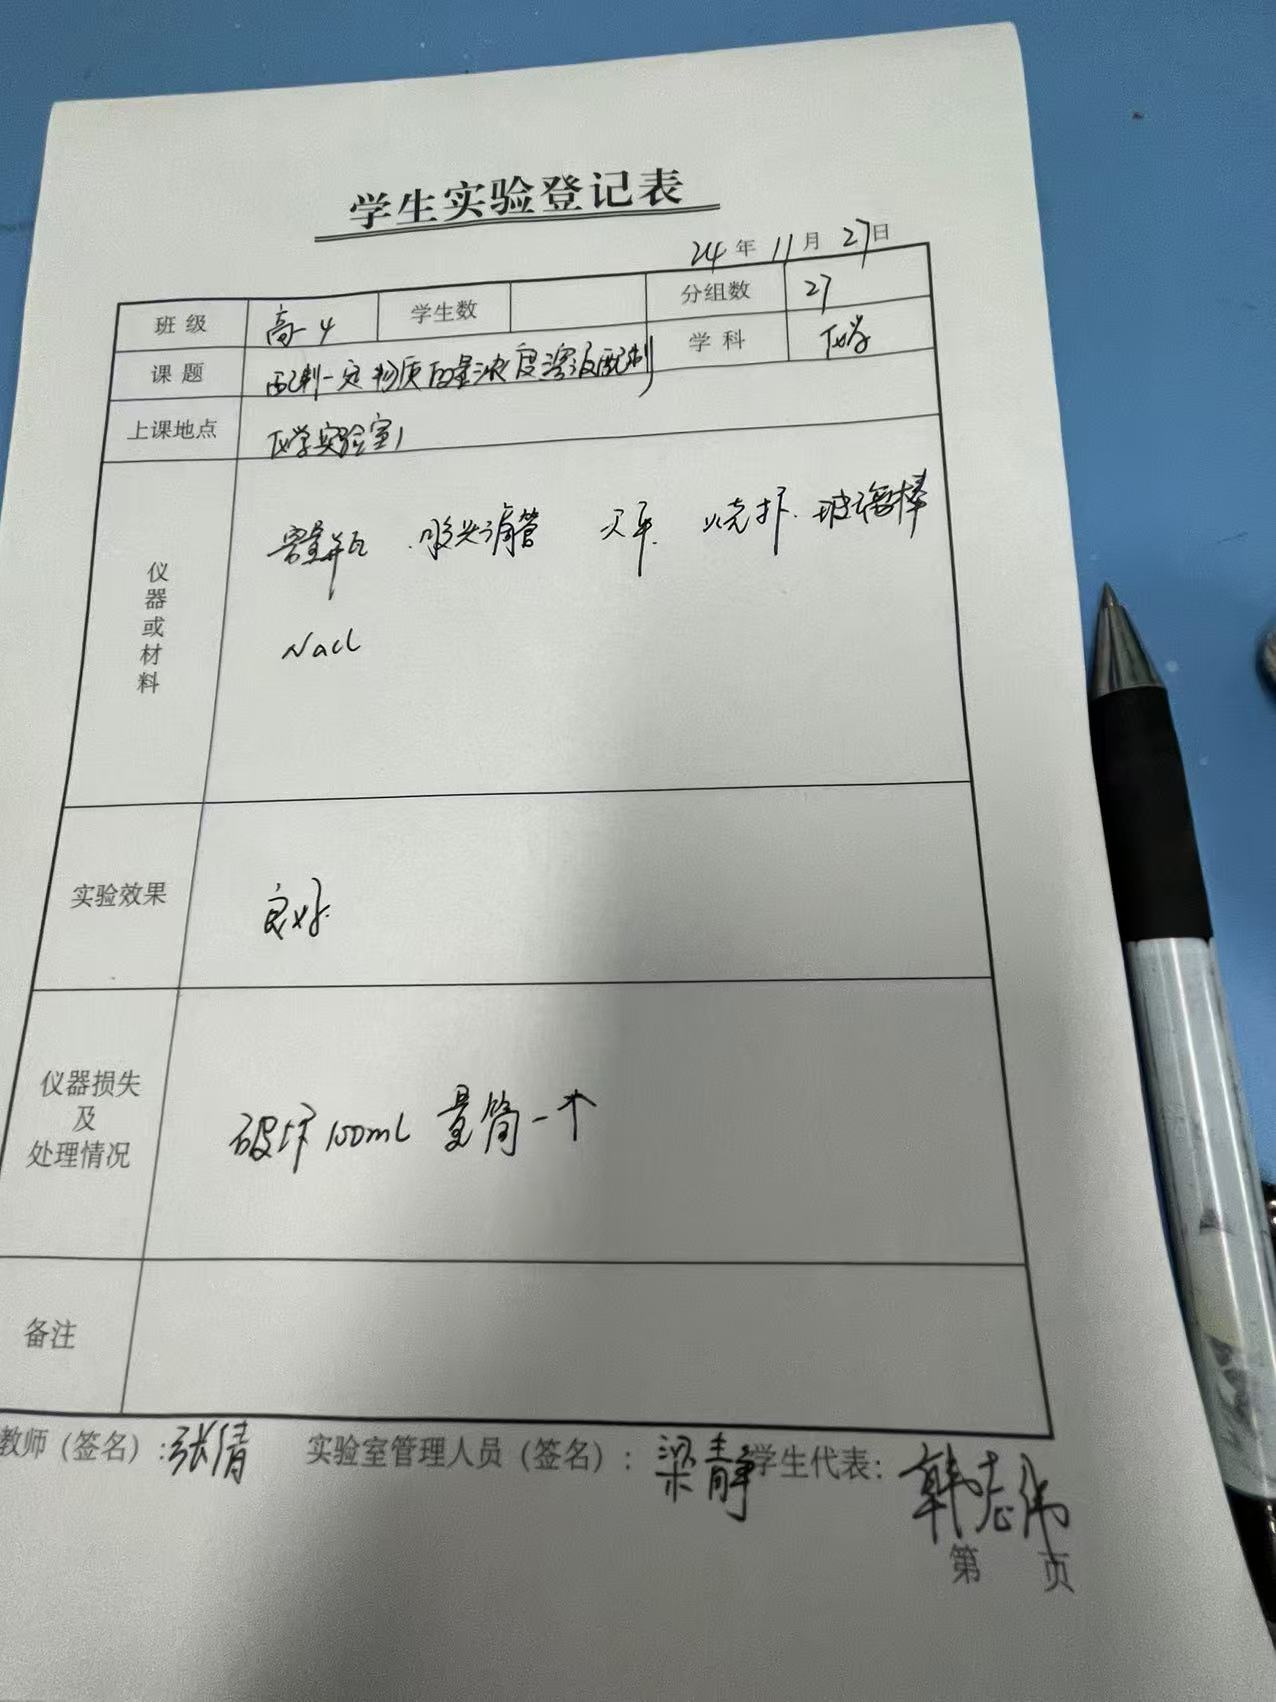 学生实验登记表
24年11月27日
班级 高一4 学生数 分组数 27
课题 配制一定物质的量浓度溶液配制 学科 化学
上课地点 化学实验室1
仪器或材料 容量瓶 胶头滴管 天平 烧杯 玻璃棒
NaCl
实验效果 良好
仪器损失
及
处理情况 破坏100mL 量筒一个
备注
教师（签名）：张倩 实验室管理人员（签名）：梁静 学生代表：韩志伟
第 页